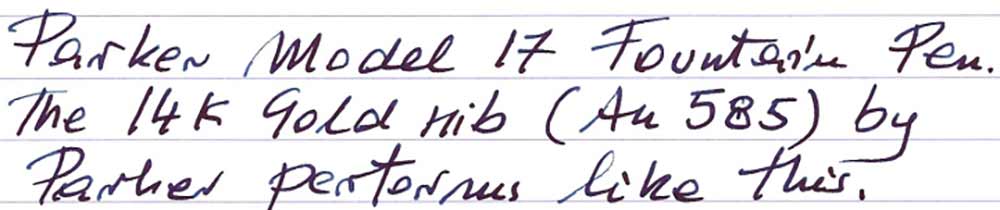 Parker Model 17 Fountain Pen.
The 14K Gold nib (Au 585) by
Parker performs like this.